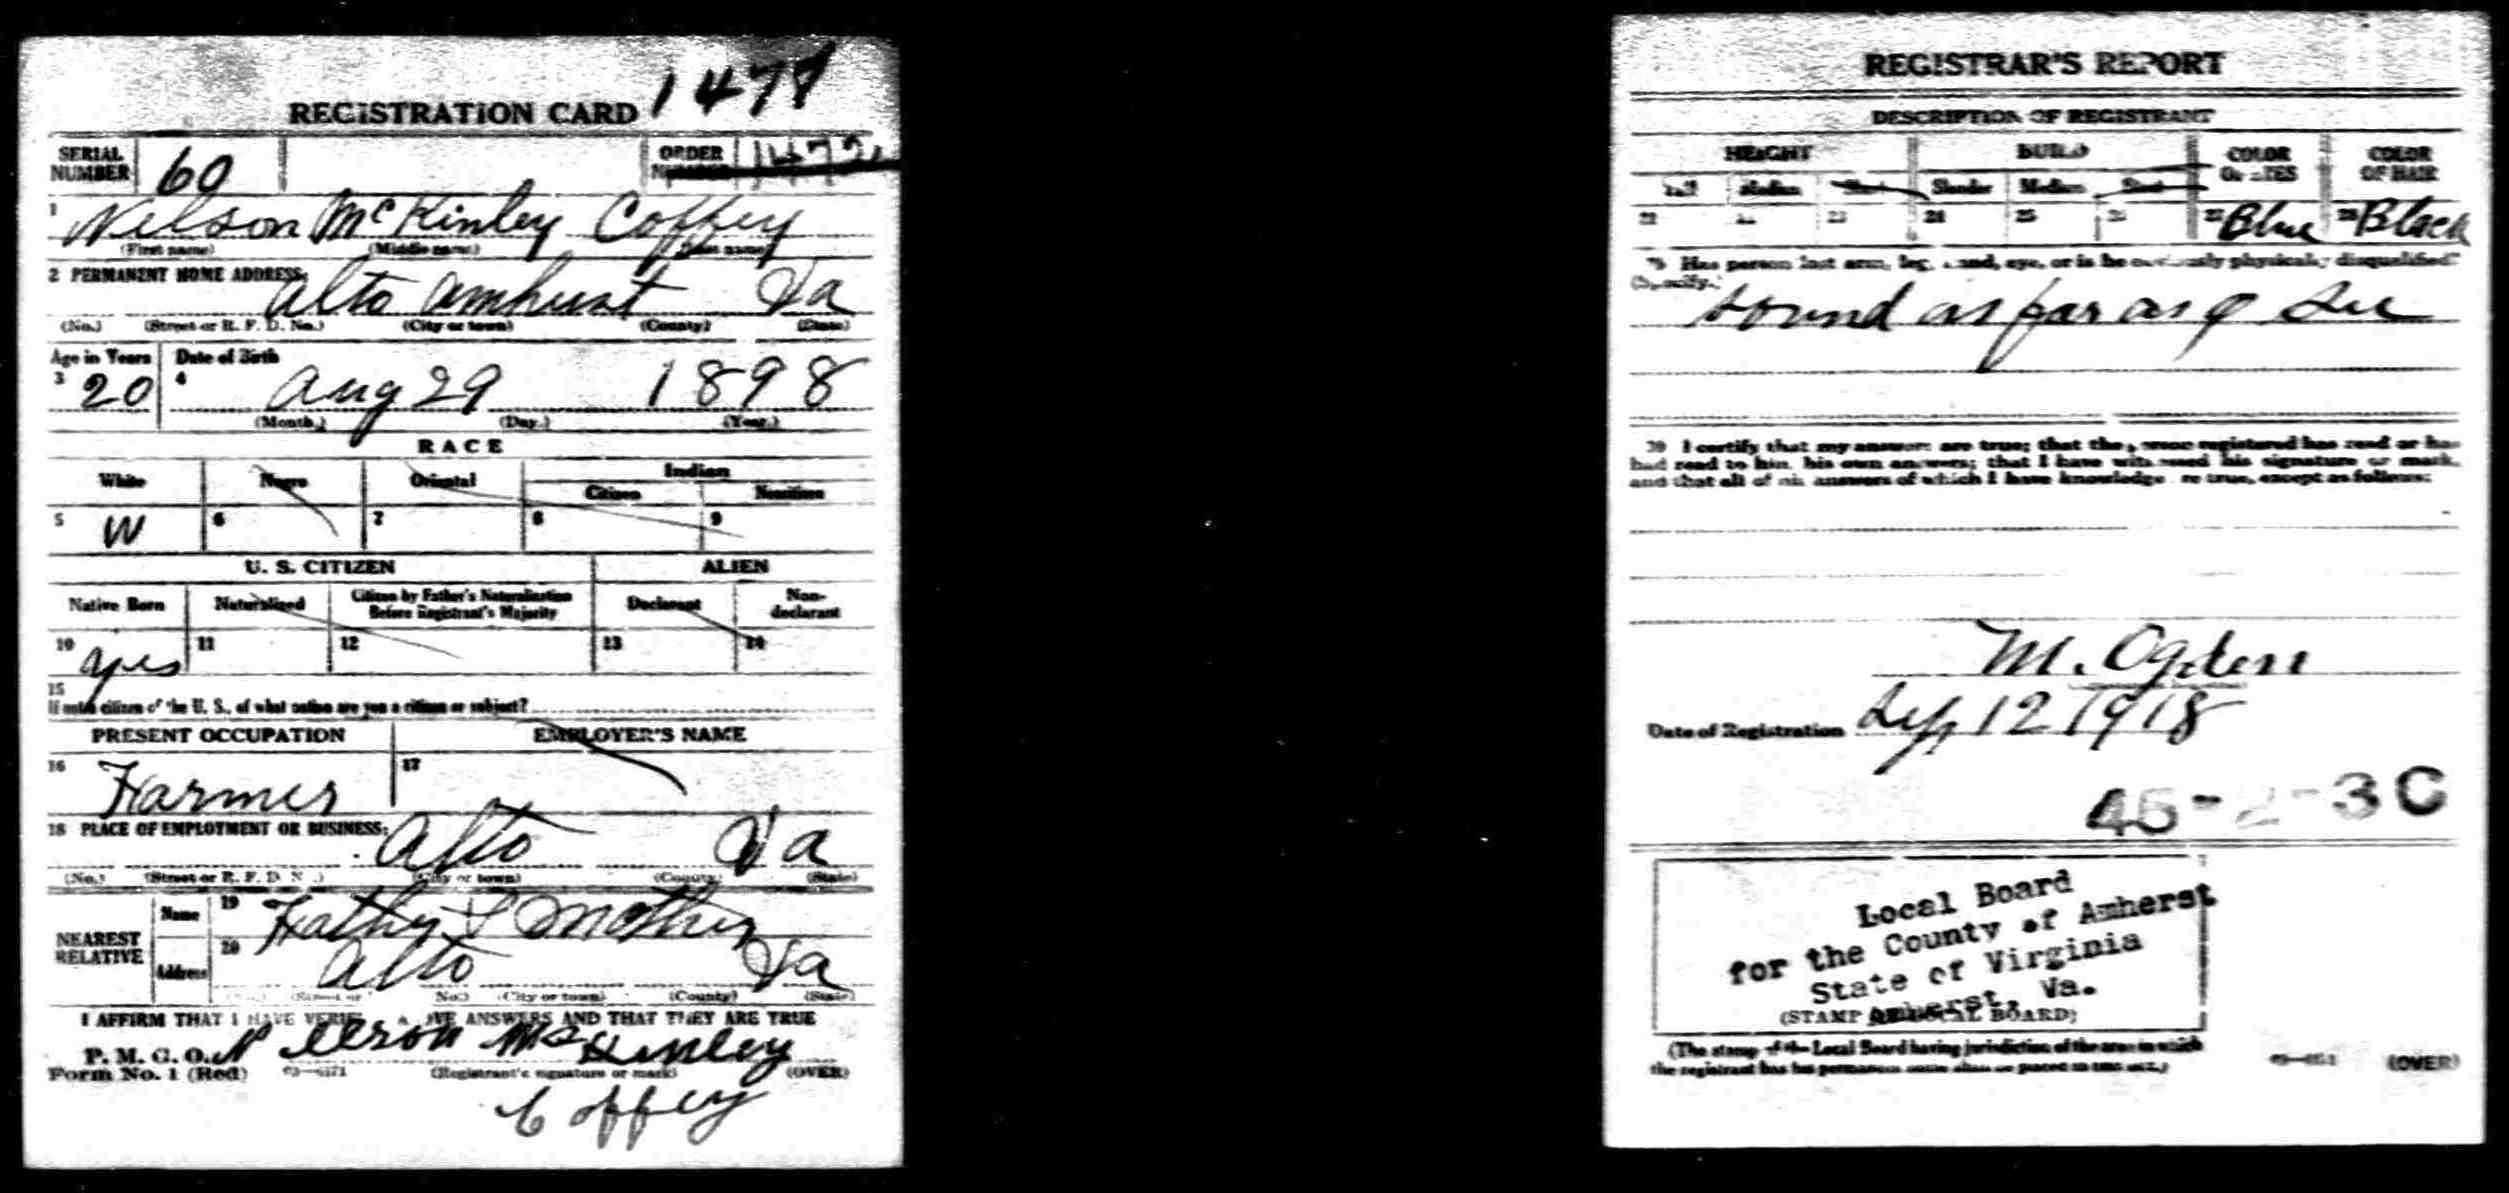 REGISTRATION CARD
SERIAL NUMBER 60 ORDER
1 Nelson McKinley Coffey
(First name) (Middle name) (Last name)
2 PERMANENT HOME ADDRESS:
Alto Amherst Va
(No.) (Street or R. F. D. No.) (City or town) (County) (State)
Age in Years Date of Birth
3 20 4 Aug 29 1898
(Month.) (Day.) (Year.)
RACE
White Negro Oriental Indian
Citizen Noncitizen
5 W 6 7 8 9
U. S. CITIZEN ALIEN
Native Born Naturalized Citizen by Father's Naturalization Before Registrant's Majority Declarant Non-declarant
10 yes 11 12 13 14
15
If not a citizen of the U. S., of what nation are you a citizen or subject?
PRESENT OCCUPATION EMPLOYER'S NAME
16 Farmer 17
18 PLACE OF EMPLOYMENT OR BUSINESS:
Alto Va
(No.) (Street or R. F. D. No.) (City or town) (County) (State)
NEAREST RELATIVE
Name 19 Mother
Address 20 Alto Va
(No.) (Street or No.) (City or town) (County) (State)
I AFFIRM THAT I HAVE VERIFIED ABOVE ANSWERS AND THAT THEY ARE TRUE
P. M. G. O. Nelson Mc Kinley
Form No. 1 (Red) (Registrant's signature or mark) (OVER)
Coffey
REGISTRAR'S REPORT
DESCRIPTION OF REGISTRANT
HEIGHT BUILD COLOR OF EYES COLOR OF HAIR
Tall Medium Short Slender Medium Stout
21 22 23 24 25 26 27 Blue 28 Black
29 Has person lost arm, leg, hand, eye, or is he obviously physically disqualified?
(Specify.)
sound as far as I See
30 I certify that my answers are true; that the person registered has read or has
had read to him his own answers; that I have witnessed his signature or mark,
and that all of his answers of which I have knowledge are true, except as follows:
M. Ogden
Date of Registration Sep 12 1918
45-2-3 C
Local Board
for the County of Amherst
State of Virginia
Amherst, Va.
(STAMP OF LOCAL BOARD)
(The stamp of the Local Board having jurisdiction of the area in which
the registrant has his permanent home shall be placed in this box.)
(OVER)